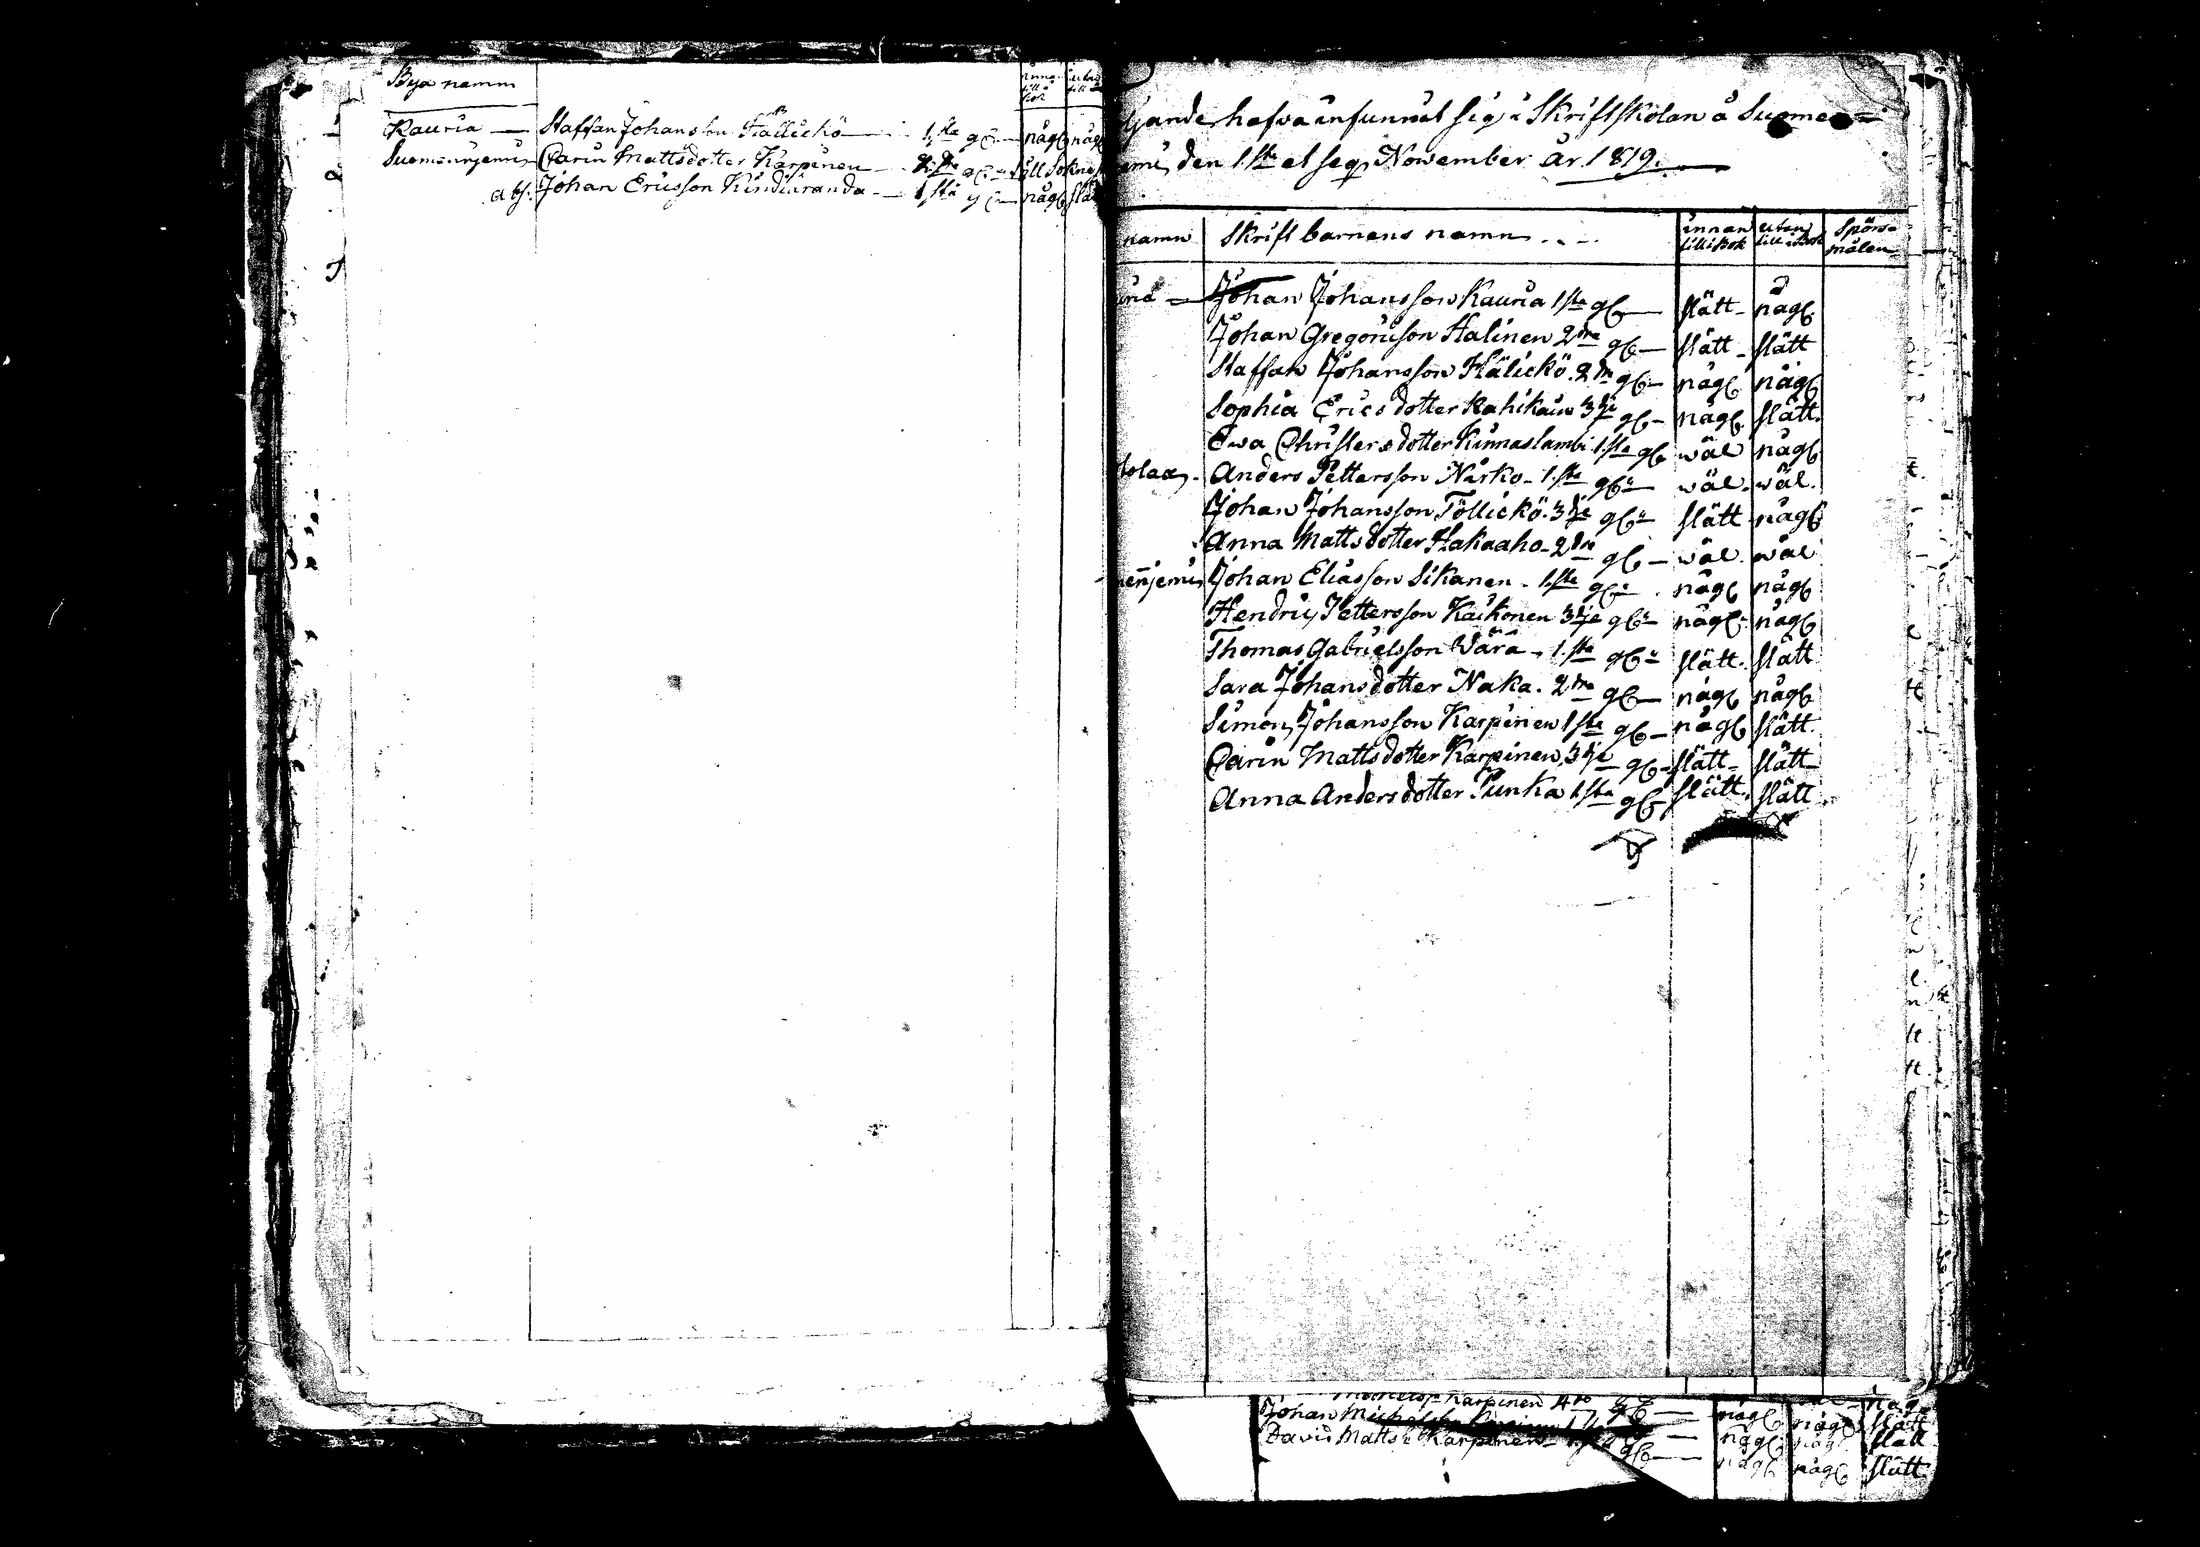 Bya namn innan till i bok utan till
Kauria — Staffan Johansson Hällickö — 1sta gg — någl någl
Suomenjemi Carin Mattsdotter Karpinen
abs. Johan Ericsson Kindiäranda — 1sta gg — någl slätt
jande hafva infunnit sig i Skriftskolan å Suomen=
emi, den 1sta et seq November år 1819.
namn Skriftbarnens namn innan till i Bok utan till i Bok Spörs=målen
Johan Johansson Kauria 1sta gg — slätt — någl
Johan Gregorison Halinen 2dra gg — slätt — slätt
Staffan Johansson Hälickö. 2dra gg — någl någl
Sophia Ericsdotter Kahikain 3dje gg — någl slätt.
Ewa Christersdotter Kinnaslambi 1sta gg wäl någl
tolax. Anders Pettersson Närko — 1sta gg — wäl. wäl.
Johan Johansson Töllickö. 3dje gg — slätt någl
Anna Mattsdotter Hakaaho — 2dra gg — wäl. wäl
enjemi Johan Eliasson Sikanen — 1sta gg — någl någl
Hendric Pettersson Kaikonen 3dje gg — någl någl
Thomas Gabrielsson Wärä — 1sta gg — slätt. slätt
Sara Johansdotter Naka. 2dra gg — någl någl
Simon Johansson Karpinen 1sta gg — någl slätt.
Carin Mattsdotter Karpinen, 3dje gg — slätt — slätt —
Anna Andersdotter Punka 1sta gg — slätt. slätt
Karpinen 4to gg — någl någl
Johan någl någl slätt
David Matts Karpinen gg — någl någl slätt